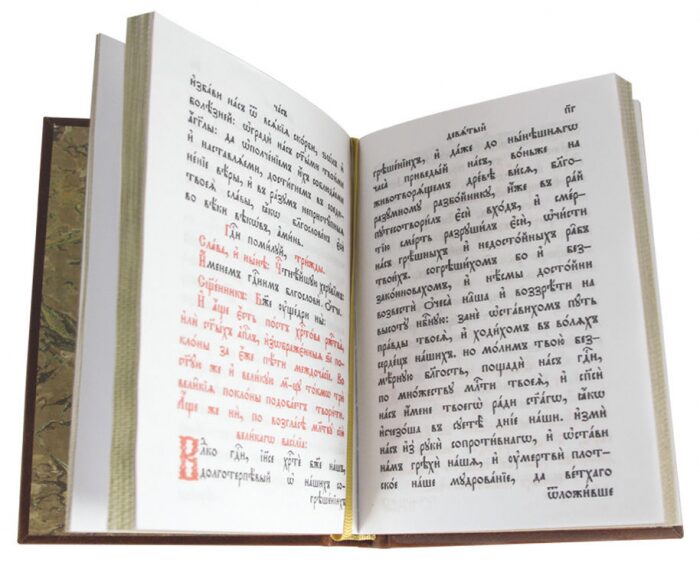 часъ
и҆зба́ви на́съ ѿ всѧ́кїѧ ско́рби, бѣ́дъ и҆
болѣ́зней: ѡ҆градѝ на́съ ст҃ы́ми твои́ми
а҆́гг҃лы: да ѡ҆полче́нїемъ и҆́хъ соблюда́еми
и҆ наставлѧ́еми, дости́гнемъ въ соеди-
не́нїе вѣ́ры, и҆ въ ра́зꙋмъ непристꙋ́пныѧ
твоеѧ̀ сла́вы, ꙗ҆́кѡ бл҃гослове́нъ є҆сѝ
во вѣ́ки вѣкѡ́въ, а҆ми́нь.
Гд҇и поми́лꙋй, три́жды.
Сла́ва, и҆ ны́нѣ: Чⷭ҇тнѣ́йшꙋю херꙋві̑мъ:
И҆́менемъ гдⷭ҇нимъ благословѝ, ѻ҆́тче.
Сщ҃е́нникъ: Бж҃е ᲂу҆ще́дри ны̀:
И҆ а҆́ще є҆́сть по́стъ хрⷭ҇то́ва ржⷭ҇тва̀,
и҆лѝ ст҃ы́хъ а҆пⷭ҇лъ, и҆з̾ѡбраже́нныѧ по-
кло́ны за є҆́же пѣ́ти междочасїѐ. Во
ст҃ꙋ́ю же и҆ вели́кꙋю м҃-цꙋ то́кмѡ трѝ
вели̑кїѧ покло́ны подоба́етъ твори́ти.
А҆́ще же нѝ, по во́згласѣ мл҃твꙋ сїю̀
вели́кагѡ васі́лїа:
Влⷣко гдⷭ҇и, і҆и҃се хрⷭ҇тѐ бж҃е на́шъ,
долготерпѣ́вый ѡ҆ на́шихъ со-
грѣше́нїихъ
девѧ́тый
п҃г
грѣше́нїихъ, и҆ да́же до ны́нѣшнѧгѡ
часа̀ приведы́й на́съ, во́ньже на
животворѧ́щемъ дре́вѣ ви́сѧ, бл҃го-
разꙋ́мномꙋ разбо́йникꙋ, и҆́же въ ра́й
пꙋтесотвори́лъ є҆сѝ вхо́дъ, и҆ сме́р-
тїю сме́рть разрꙋши́лъ є҆сѝ, ѡ҆чи́сти
на́съ грѣ́шныхъ и҆ недосто́йныхъ ра̑бъ
твои́хъ. согрѣши́хомъ бо и҆ без-
зако́нновахомъ, и҆ нѣ́смы досто́йни
возвестѝ ѻ҆чеса̀ на̑ша и҆ воззрѣ́ти на
высотꙋ̀ нбⷭ҇нꙋю: занѐ ѡ҆ста́вихомъ пꙋ́ть
пра́вды твоеѧ̀, и҆ ходи́хомъ въ во́лѧхъ
серде́цъ на́шихъ. но мо́лимъ твою̀ без-
мѣ́рнꙋю бл҃гость, пощадѝ на́съ гдⷭ҇и,
по мно́жествꙋ млⷭ҇ти твоеѧ̀, и҆ сп҃сѝ
на́съ и҆́мене твоегѡ̀ ра́ди ст҃а́гѡ, ꙗ҆́кѡ
и҆счезо́ша въ сꙋетѣ̀ днї́е на́ши. и҆змѝ
на́съ и҆з̾ рꙋкѝ сопроти́внагѡ, и҆ ѡ҆ста́ви
на́мъ грѣхѝ на́шѧ, и҆ ᲂу҆мертвѝ пло́т-
ское на́ше мꙋдрова́нїе, да ве́тхаго
ѿложи́вше